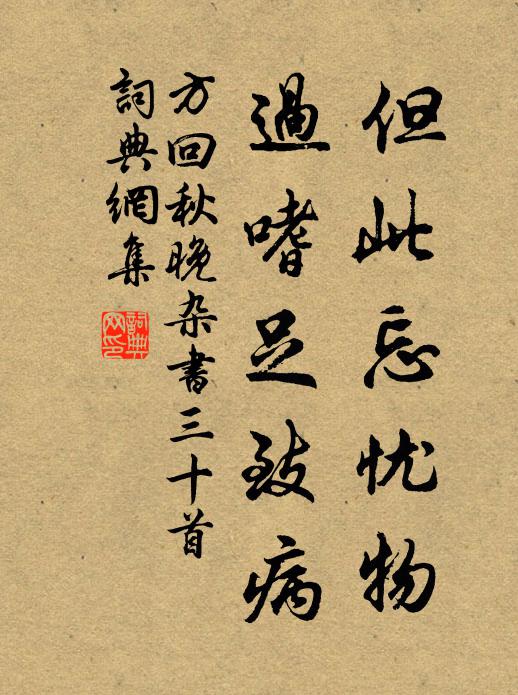 但此忘忧物
過嗜足致病
方回秋晚杂書三十首
詞典網集
詞典网印